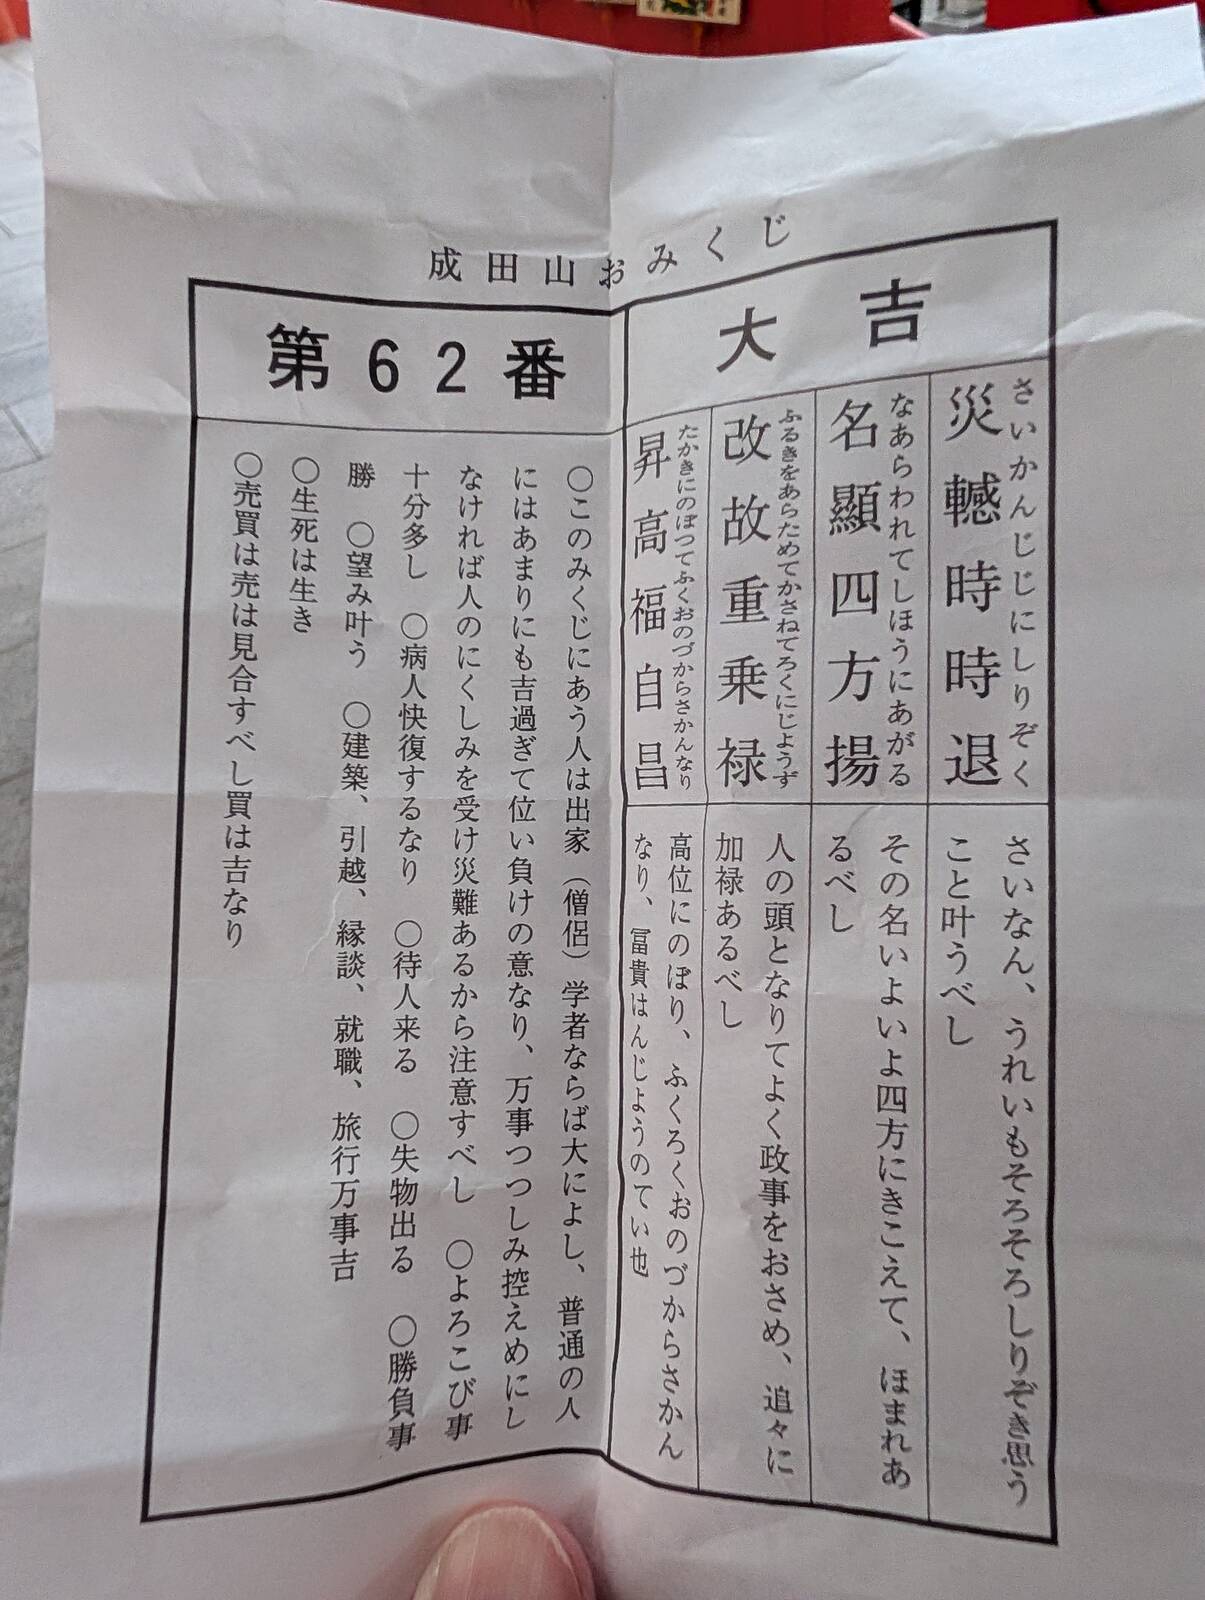 成田山おみくじ
大吉
さいかんじじにしりぞく
災轗時時退
さいなん、うれいもそろそろしりぞき思う
こと叶うべし
なあらわれてしほうにあがる
名顯四方揚
その名いよいよ四方にきこえて、ほまれあ
るべし
ふるきをあらためてかさねてろくにじようず
改故重乗禄
人の頭となりてよく政事をおさめ、追々に
加禄あるべし
たかきにのぼつてふくおのづからさかんなり
昇高福自昌
高位にのぼり、ふくろくおのづからさかん
なり、冨貴はんじようのてい也
第62番
○このみくじにあう人は出家（僧侶）学者ならば大によし、普通の人
にはあまりにも吉過ぎて位い負けの意なり、万事つつしみ控えめにし
なければ人のにくしみを受け災難あるから注意すべし　○よろこび事
十分多し　○病人快復するなり　○待人来る　○失物出る　○勝負事
勝　○望み叶う　○建築、引越、縁談、就職、旅行万事吉
○生死は生き
○売買は売は見合すべし買は吉なり